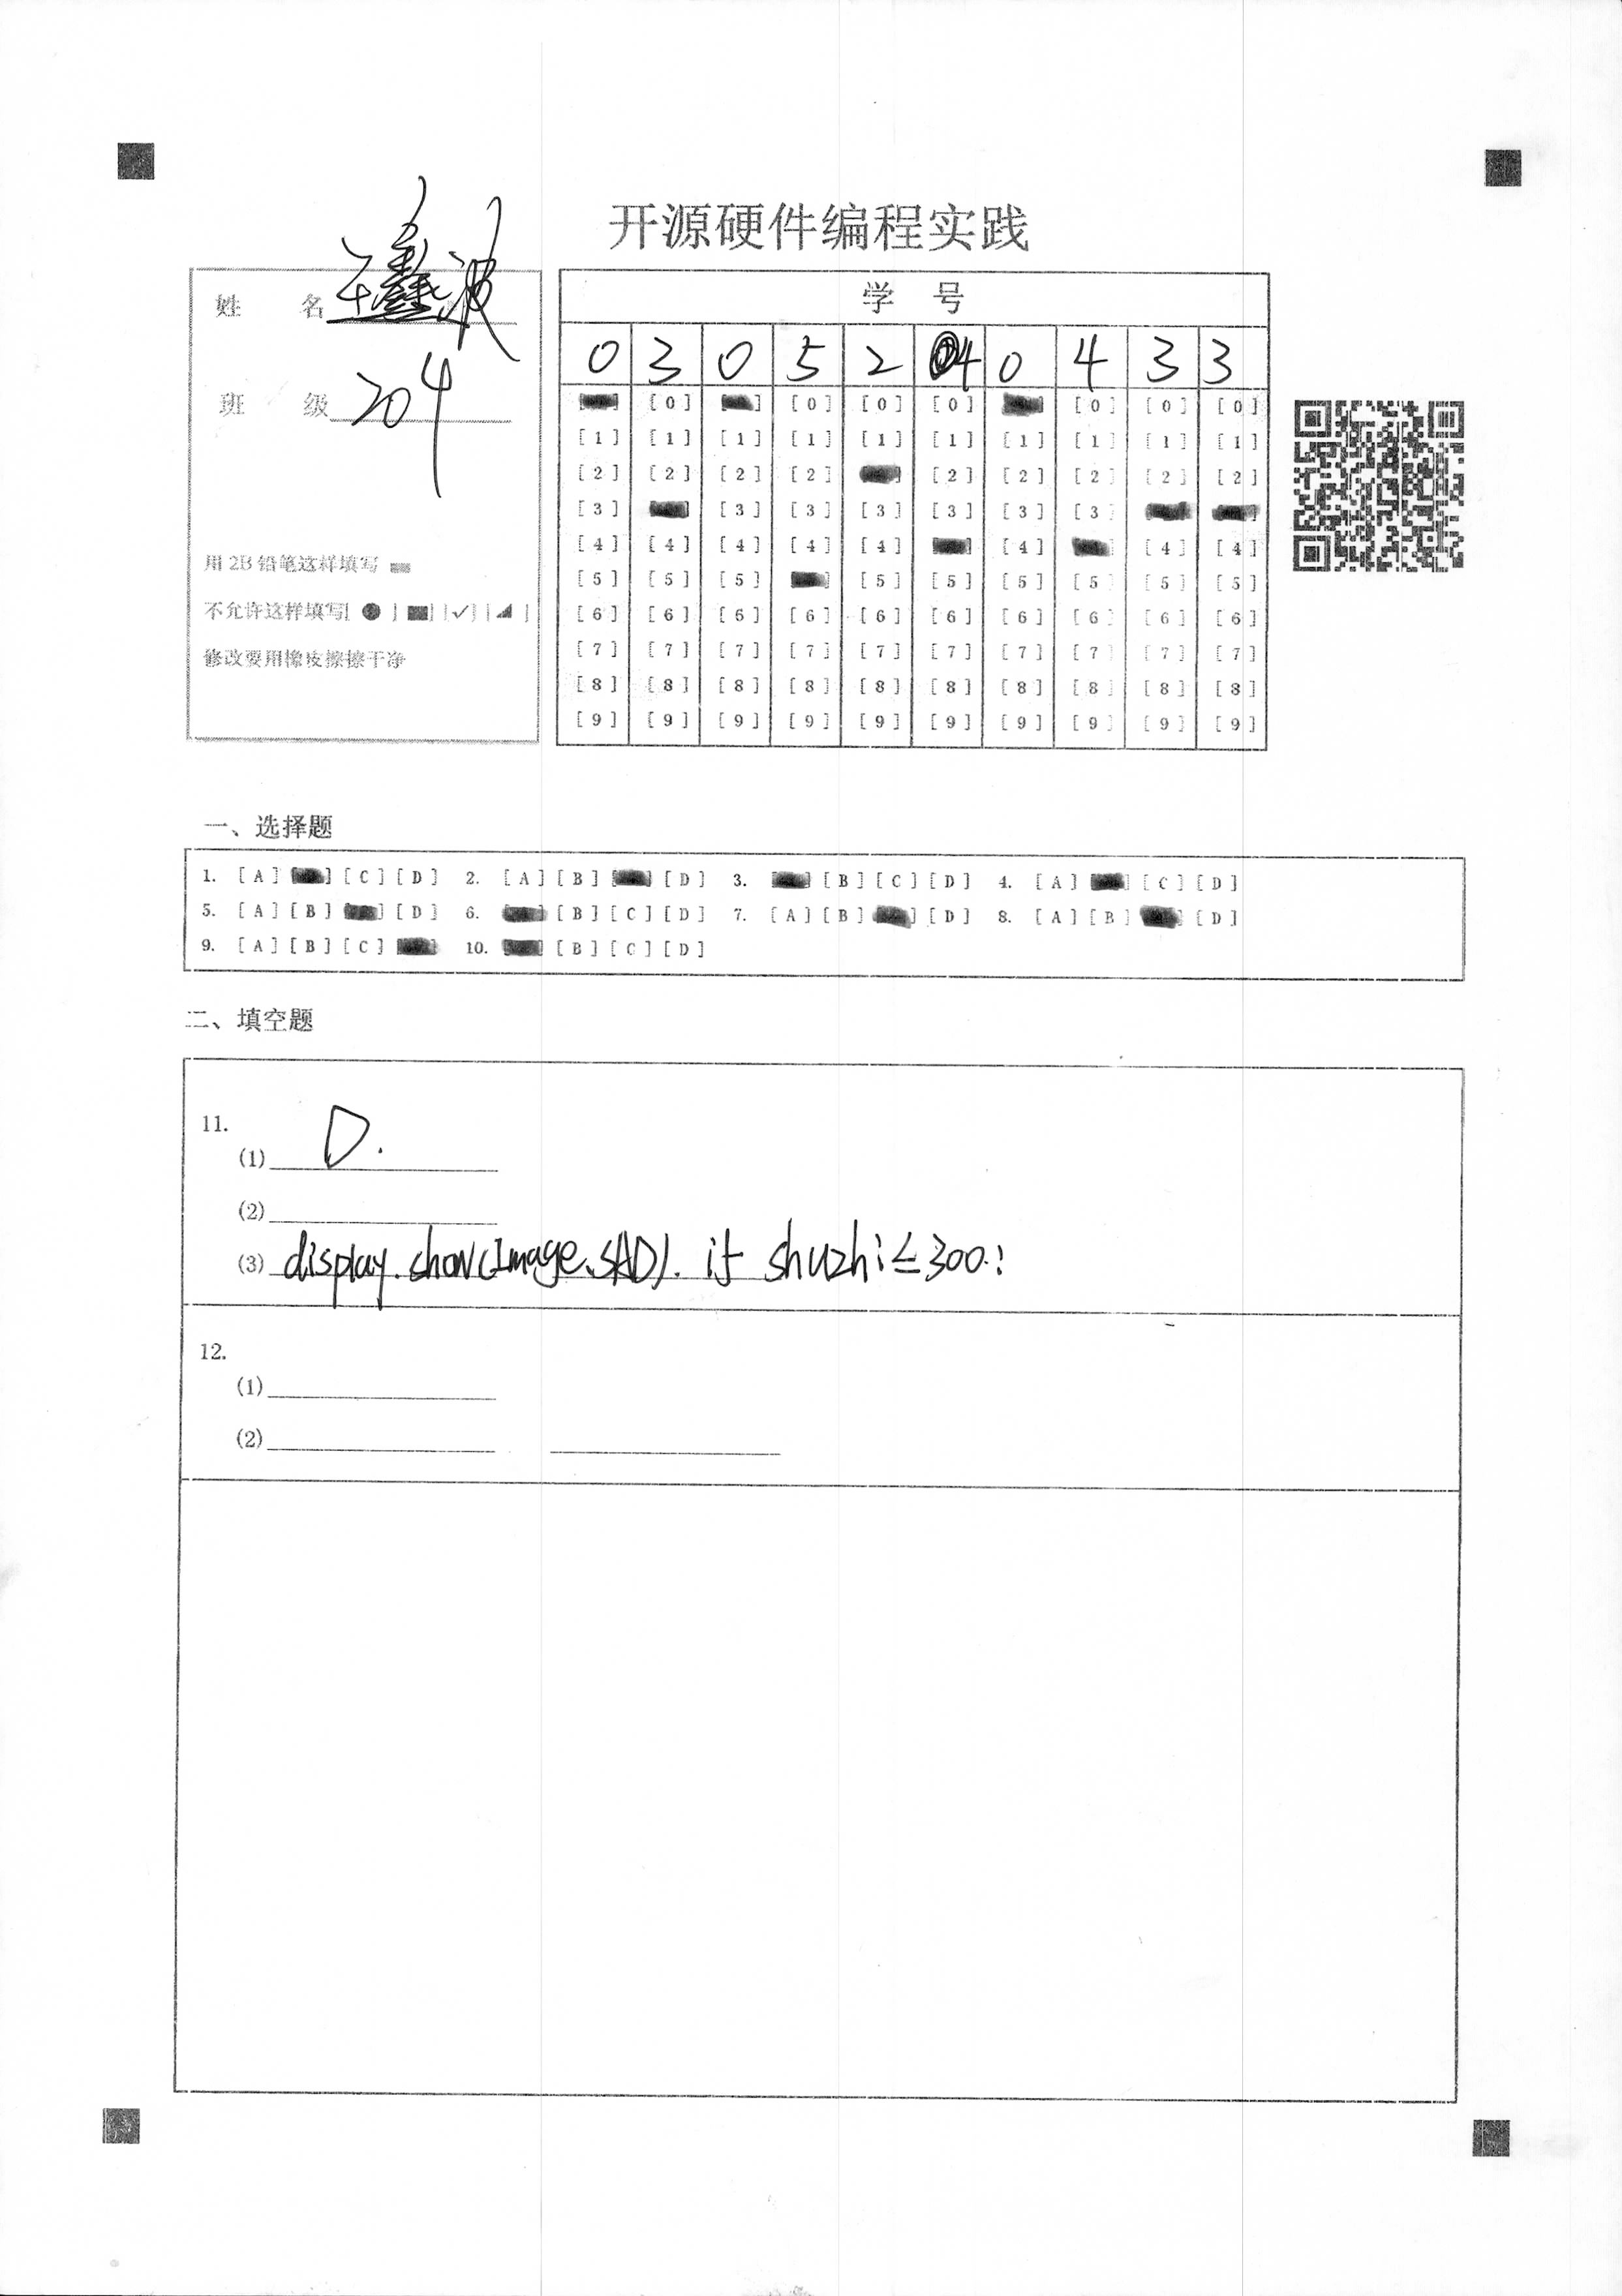 开源硬件编程实践
姓 名 王鑫波
班 级 204
用 2B 铅笔这样填写
不允许这样填写[ ● ] [■] [✓] [◢ ]
修改要用橡皮擦擦干净
学 号
0 3 0 5 2 4 0 4 3 3
[0] [0] [0] [0] [0] [0] [0]
[1] [1] [1] [1] [1] [1] [1] [1] [1] [1]
[2] [2] [2] [2] [2] [2] [2] [2] [2]
[3] [3] [3] [3] [3] [3] [3]
[4] [4] [4] [4] [4] [4] [4] [4]
[5] [5] [5] [5] [5] [5] [5] [5] [5]
[6] [6] [6] [6] [6] [6] [6] [6] [6] [6]
[7] [7] [7] [7] [7] [7] [7] [7] [7] [7]
[8] [8] [8] [8] [8] [8] [8] [8] [8] [8]
[9] [9] [9] [9] [9] [9] [9] [9] [9] [9]
一、选择题
1. [A] [C] [D] 2. [A] [B] [D] 3. [B] [C] [D] 4. [A] [C] [D]
5. [A] [B] [D] 6. [B] [C] [D] 7. [A] [B] [D] 8. [A] [B] [D]
9. [A] [B] [C] 10. [B] [C] [D]
二、填空题
11.
(1) D.
(2)
(3) display.show(Image.SAD). if shuzhi≤300:
12.
(1)
(2)